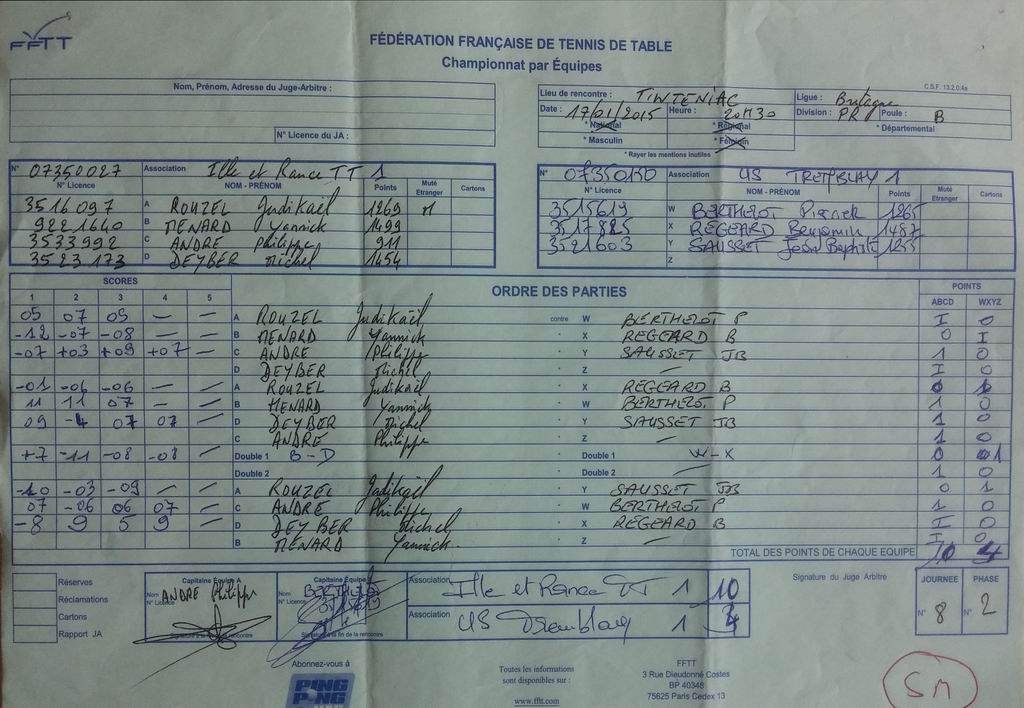 FFTT
FÉDÉRATION FRANÇAISE DE TENNIS DE TABLE
Championnat par Équipes
C.S.F. 13.2.0.4a
Nom, Prénom, Adresse du Juge-Arbitre :
N° Licence du JA :
Lieu de rencontre : TINTENIAC Ligue : Bretagne
Date : 17/01/2015 Heure : 20H30 Division : PR Poule : B
* National * Régional * Départemental
* Masculin * Féminin
* Rayer les mentions inutiles
N° 07350027 Association Ille et Rance TT 1
N° Licence NOM - PRÉNOM Points Muté Etranger Cartons
3516097 A ROUZEL Judikaël 1269 M
9221640 B MENARD Yannick 1499
3533992 C ANDRE Philippe 911
3523173 D DEYBER Michel 1454
N° 07350150 Association US TREMBLAY 1
N° Licence NOM - PRÉNOM Points Muté Etranger Cartons
3515619 W BERTHELOT Pierrick 1265
3517825 X REGEARD Benjamin 1487
3521603 Y SAUSSET Jean Baptiste 1255
Z
SCORES ORDRE DES PARTIES POINTS
1 2 3 4 5 ABCD WXYZ
05 07 05 — — A ROUZEL Judikaël contre W BERTHELOT P I 0
-12 -07 -08 — — B MENARD Yannick X REGEARD B 0 I
-07 +03 +09 +07 — C ANDRE Philippe Y SAUSSET JB 1 0
D DEYBER Michel Z — I 0
-01 -06 -06 — — A ROUZEL Judikaël X REGEARD B 0 1
11 11 07 — — B MENARD Yannick W BERTHELOT P 1 0
09 -4 07 07 — D DEYBER Michel Y SAUSSET JB 1 0
C ANDRE Philippe Z — 1 0
+7 -11 -08 -08 — Double 1 B-D Double 1 W-X 0 1
Double 2 Double 2 — 1 0
-10 -03 -09 — — A ROUZEL Judikaël Y SAUSSET JB 0 1
07 -06 06 07 — C ANDRE Philippe W BERTHELOT P 1 0
-8 9 5 9 — D DEYBER Michel X REGEARD B I 0
B MENARD Yannick Z — I 0
TOTAL DES POINTS DE CHAQUE EQUIPE 10 4
Réserves
Réclamations
Cartons
Rapport JA
Capitaine Équipe A
Nom ANDRE Philippe
N° Licence
Signature à la fin de la rencontre
Capitaine Équipe
Nom BERTHELOT
N° Licence 3515619
Signature à la fin de la rencontre
Association Ille et Rance TT 1 10
Association US Tremblay 1
Signature du Juge Arbitre
JOURNEE PHASE
N° 8 N° 2
Abonnez-vous à
PING PONG
Toutes les informations
sont disponibles sur :
www.fftt.com
FFTT
3 Rue Dieudonné Costes
BP 40348
75625 Paris Cedex 13
SM